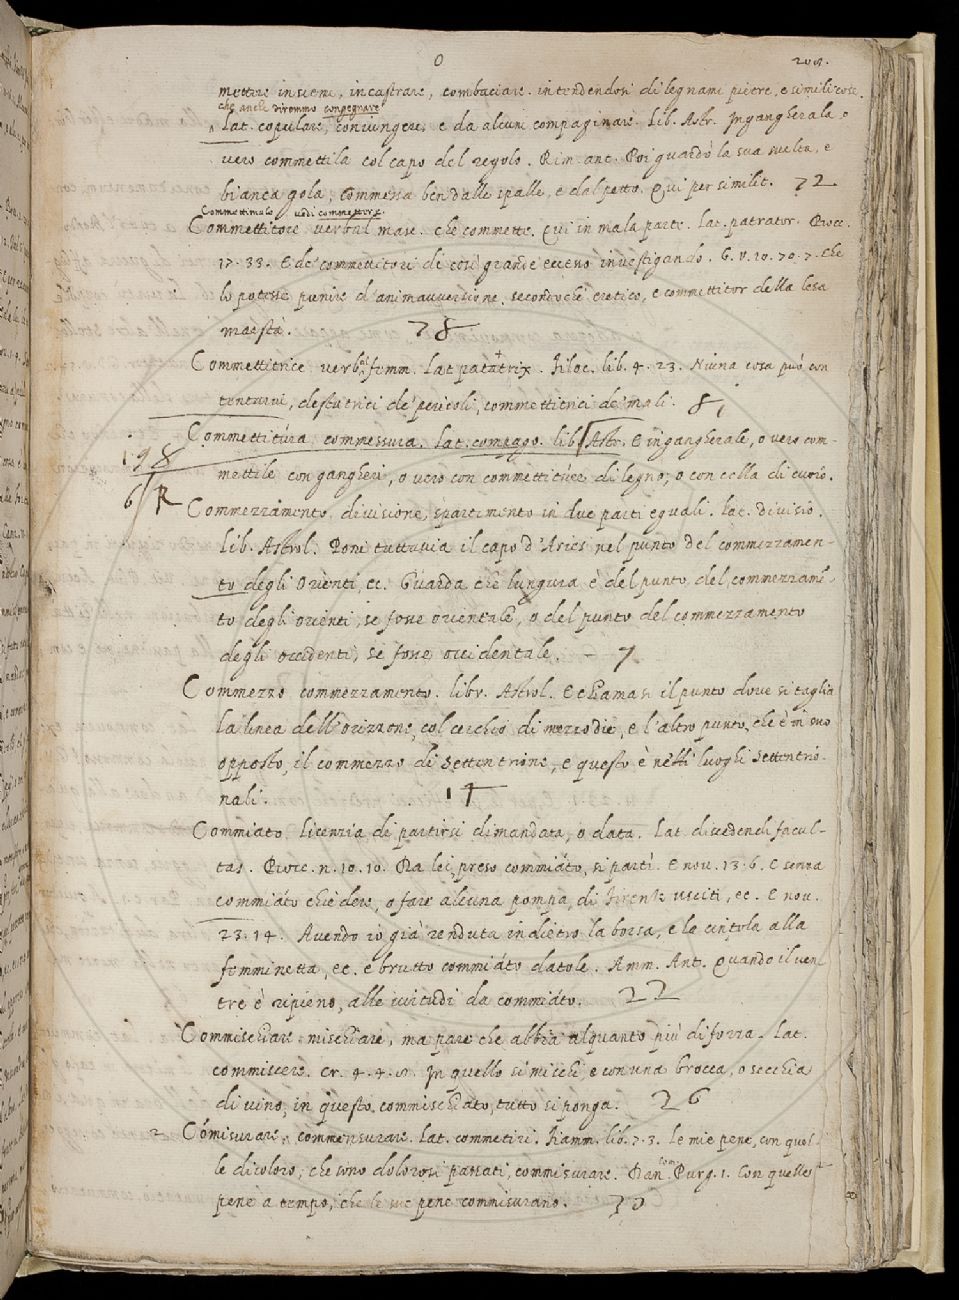 0
mettere insieme, incastrare, combaciare. intendendosi di legnami pietre, e simili cose.
che anche diremmo congegnare
Lat. copulare, coniungere, e da alcuni compaginare. Lib. Astr. Ingangherala, o
vero commettila col capo del regolo. Rim. ant. Poi guardò la sua svelta, e
bianca gola, Commessa ben dalle spalle, e dal petto. Qui per similit. 72
Commettimale vedi commettere.
Commettitore verbal masc. che commette. Qui in mala parte. Lat. patrator. Bocc.
17. 33. E de' commettitori di così grande eccesso investigando. G. V. 10. 70. 7. che
lo potesse punire d'animavversione, secondo che eretico, e committitor della lesa
maestà. 78
Commettitrice verbal femm. Lat. patratrix. Filoc. lib. 4. 23. Niuna cosa può con
tentarvi, destatrici de' pericoli, commettitrici de' mali. 81
Commettitúra commessura. Lat. compago. lib. Astr. E ingangherale, o vero com-
198
mettile con gangheri, o vero con commettitúre di legno, o con colla di cuoio.
6 R
Commezzamento divisione, spartimento in due parti eguali. Lat. divisio.
Lib. Astrol. Poni tuttavia il capo d'Aries nel punto del commezzamen-
to degli Orienti, ec. Guarda che lungura è del punto del commezzamē-
to degli orienti, se fosse orientale, o del punto del commezzamento
degli occidenti, se fosse occidentale. – 7
Commezzo commezzamento. libr. Astrol. E chiamasi il punto dove si taglia
la linea dell'orizzone, col cerchio di mezzodie, e l'altro punto, che è in suo
opposto, il commezzo di Settentrione, e questo è nelli luoghi Settentrio-
nali. 14
Commiato. Licenzia di partirsi dimandata, o data. Lat. discedendi facul-
tas. Bocc. n. 10. 10. Da lei, preso commiáto, si partì. E nov. 13. 6. E senza
commiáto chiedere, o fare alcuna pompa, di Firenze usciti, ec. E nov.
73. 14. Avendo io già renduta indietro la borsa, e la cintola alla
femminetta, ec. e brutto commiáto datole. Amm. Ant. Quando il ven-
tre è ripieno, alle virtudi da commiáto. 22
Commischiare mischiare, ma pare che abbia alquanto più di forza. Lat.
commiscere. Cr. 4. 4. In quello si micchi, e con una brocca, o secchia
di vino, in questo commischiato, tutto si ponga. 26
Cōmisurare, commensurare. Lat. commetiri. Fiamm. lib. 7. 3. Le mie pene, con quel-
le di coloro, che sono dolorosi passati, commisurare. Dan. Purg. 1. Con quelle
pene a tempo, che le sue pene commisurano. 30